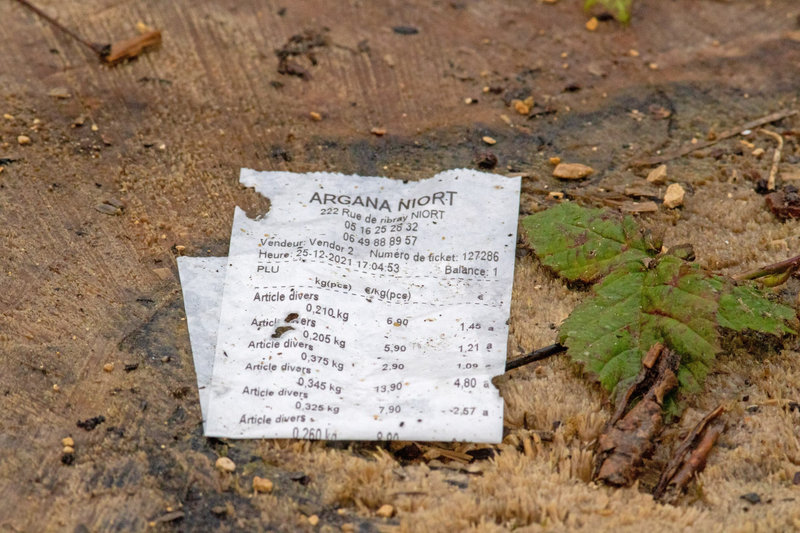 ARGANA NIORT
222 Rue de ribray NIORT
05 16 25 28 32
06 49 88 89 57
Vendeur: Vendor 2 Numéro de ticket: 127286
Heure: 25-12-2021 17:04:53 Balance: 1
PLU
kg(pcs) €/kg(pcs) €
Article divers
0,210 kg 6,90 1,45 a
Article divers
0,205 kg 5,90 1,21 a
Article divers
0,375 kg 2,90 1,09 a
Article divers
0,345 kg 13,90 4,80 a
Article divers
0,325 kg 7,90 -2,57 a
Article divers
0,260 kg 8,90